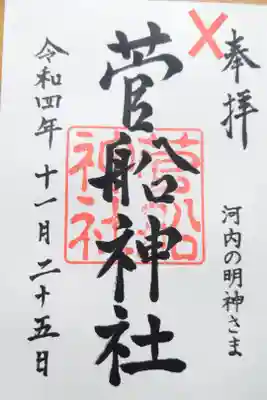 奉拝
河内の明神さま
菅船神社
菅船神社
令和四年 十一月 二十五日